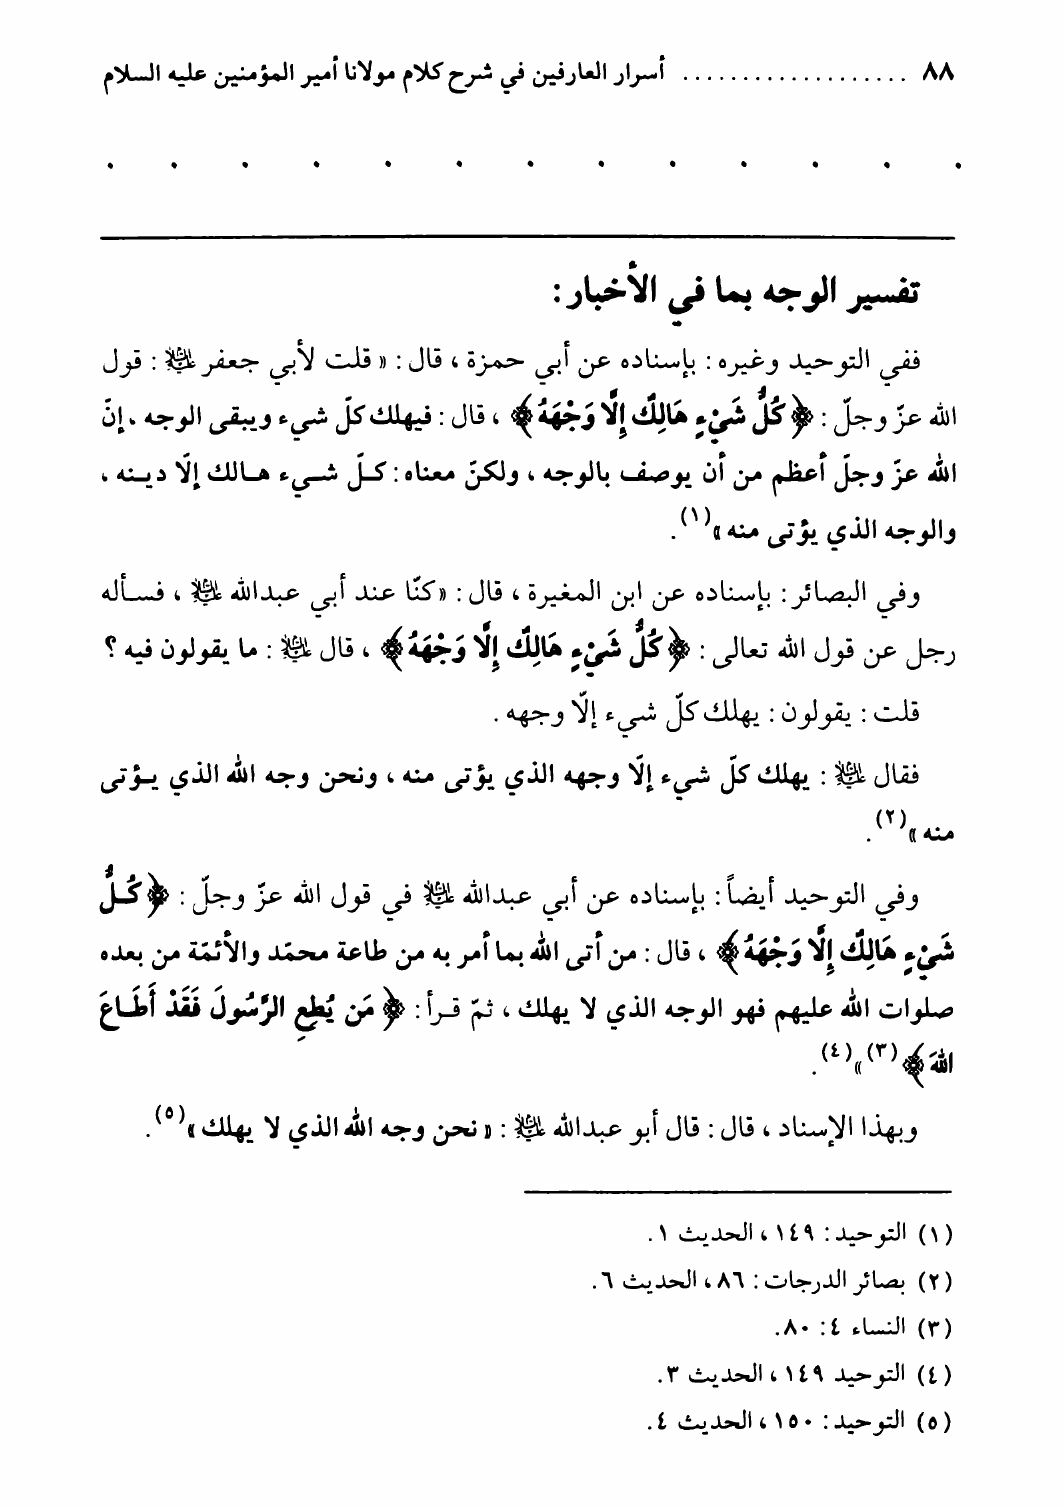 ٨٨ ................... أسرار العارفين في شرح كلام مولانا أمير المؤمنين عليه السلام
. . . . . . . . . . . . .
تفسير الوجه بما في الأخبار :
ففي التوحيد وغيره : بإسناده عن أبي حمزة ، قال : « قلت لأبي جعفر عليه السلام : قول
الله عزّ وجلّ : ﴿ كُلُّ شَيْءٍ هَالِكٌ إِلَّا وَجْهَهُ ﴾ ، قال : فيهلك كلّ شيء ويبقى الوجه ، إنّ
الله عزّ وجلّ أعظم من أن يوصف بالوجه ، ولكنّ معناه : كـلّ شـيء هـالك إلّا ديـنه ،
والوجه الذي يؤتى منه »(١).
وفي البصائر : بإسناده عن ابن المغيرة ، قال : « كنّا عند أبي عبدالله عليه السلام ، فسـأله
رجل عن قول الله تعالى : ﴿ كُلُّ شَيْءٍ هَالِكٌ إِلَّا وَجْهَهُ ﴾ ، قال عليه السلام : ما يقولون فيه ؟
قلت : يقولون : يهلك كلّ شيء إلّا وجهه .
فقال عليه السلام : يهلك كلّ شيء إلّا وجهه الذي يؤتى منه ، ونحن وجه الله الذي يـؤتى
منه »(٢).
وفي التوحيد أيضاً : بإسناده عن أبي عبدالله عليه السلام في قول الله عزّ وجلّ : ﴿ كُـلُّ
شَيْءٍ هَالِكٌ إِلَّا وَجْهَهُ ﴾ ، قال : من أتى الله بما أمر به من طاعة محمّد والأئمّة من بعده
صلوات الله عليهم فهو الوجه الذي لا يهلك ، ثمّ قـرأ : ﴿ مَن يُطِعِ الرَّسُولَ فَقَدْ أَطَـاعَ
اللهَ ﴾(٣) »(٤).
وبهذا الإسناد ، قال : قال أبو عبدالله عليه السلام : « نحن وجه الله الذي لا يهلك »(٥).
(١) التوحيد : ١٤٩ ، الحديث ١.
(٢) بصائر الدرجات : ٨٦ ، الحديث ٦.
(٣) النساء ٤ : ٨٠.
(٤) التوحيد ١٤٩ ، الحديث ٣.
(٥) التوحيد : ١٥٠ ، الحديث ٤.